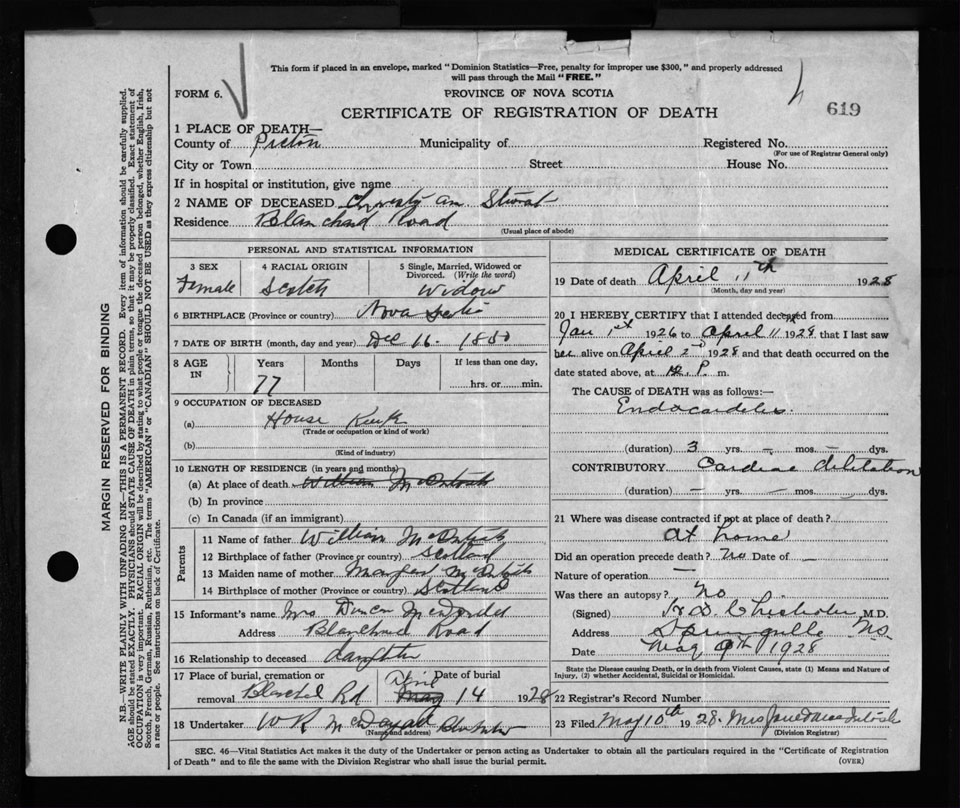 This form if placed in an envelope, marked "Dominion Statistics—Free, penalty for improper use $300," and properly addressed
will pass through the Mail "FREE."
FORM 6.
PROVINCE OF NOVA SCOTIA
CERTIFICATE OF REGISTRATION OF DEATH
619
1 PLACE OF DEATH—
County of Pictou Municipality of Registered No.
(For use of Registrar General only)
City or Town Street House No.
If in hospital or institution, give name
2 NAME OF DECEASED Christy Ann
Residence Blanchard Road
(Usual place of abode)
PERSONAL AND STATISTICAL INFORMATION
3 SEX 4 RACIAL ORIGIN 5 Single, Married, Widowed or
Divorced. (Write the word)
Female Scotch Widow
6 BIRTHPLACE (Province or country) Nova Scotia
7 DATE OF BIRTH (month, day and year) Dec 16 1850
8 AGE IN Years Months Days If less than one day,
77 hrs. or min.
9 OCCUPATION OF DECEASED
(a) House
(Trade or occupation or kind of work)
(b)
(Kind of industry)
10 LENGTH OF RESIDENCE (in years and months)
(a) At place of death William McIntosh
(b) In province
(c) In Canada (if an immigrant)
Parents
11 Name of father William McIntosh
12 Birthplace of father (Province or country) Scotland
13 Maiden name of mother Margaret McIntosh
14 Birthplace of mother (Province or country) Scotland
15 Informant's name Mrs Duncan
Address Blanchard Road
16 Relationship to deceased daughter
17 Place of burial, cremation or Date of burial
removal Rd April May 14 1928
18 Undertaker W R
(Name and address)
MEDICAL CERTIFICATE OF DEATH
19 Date of death April 11th 1928
(Month, day and year)
20 I HEREBY CERTIFY that I attended deceased from
Jan 1st 1926 to April 11 1928 that I last saw
her alive on April 2nd 1928 and that death occurred on the
date stated above, at P. m.
The CAUSE of DEATH was as follows:—
Endocarditis
(duration) 3 yrs. — mos. — dys.
CONTRIBUTORY Cardiac dilitation
(duration) — yrs. — mos. dys.
21 Where was disease contracted if not at place of death?
At home
Did an operation precede death? No Date of —
Nature of operation —
Was there an autopsy? No
(Signed) Chisholm M.D.
Address Springville NS.
Date May 9th 1928
State the Disease causing Death, or in death from Violent Causes, state (1) Means and Nature
of Injury, (2) whether Accidental, Suicidal or Homicidal.
22 Registrar's Record Number
23 Filed May 10th 1928. Mrs Jane MacIntosh
(Division Registrar)
SEC. 46—Vital Statistics Act makes it the duty of the Undertaker or person acting as Undertaker to obtain all the particulars required in the "Certificate of Registration
of Death" and to file the same with the Division Registrar who shall issue the burial permit.
(OVER)
MARGIN RESERVED FOR BINDING
N.B.—WRITE PLAINLY WITH UNFADING INK—THIS IS A PERMANENT RECORD. Every item of information should be carefully supplied.
AGE should be stated EXACTLY. PHYSICIANS should STATE CAUSE OF DEATH in plain terms, so that it may be properly classified. Exact statement of
OCCUPATION is very important. RACIAL ORIGIN will be described by stating to what people or tongue the deceased person belonged, whether English, Irish,
Scotch, French, German, Russian, Ruthenian, etc. The terms "AMERICAN" or "CANADIAN" SHOULD NOT BE USED as they express citizenship but not
a race or people. See instructions on back of Certificate.